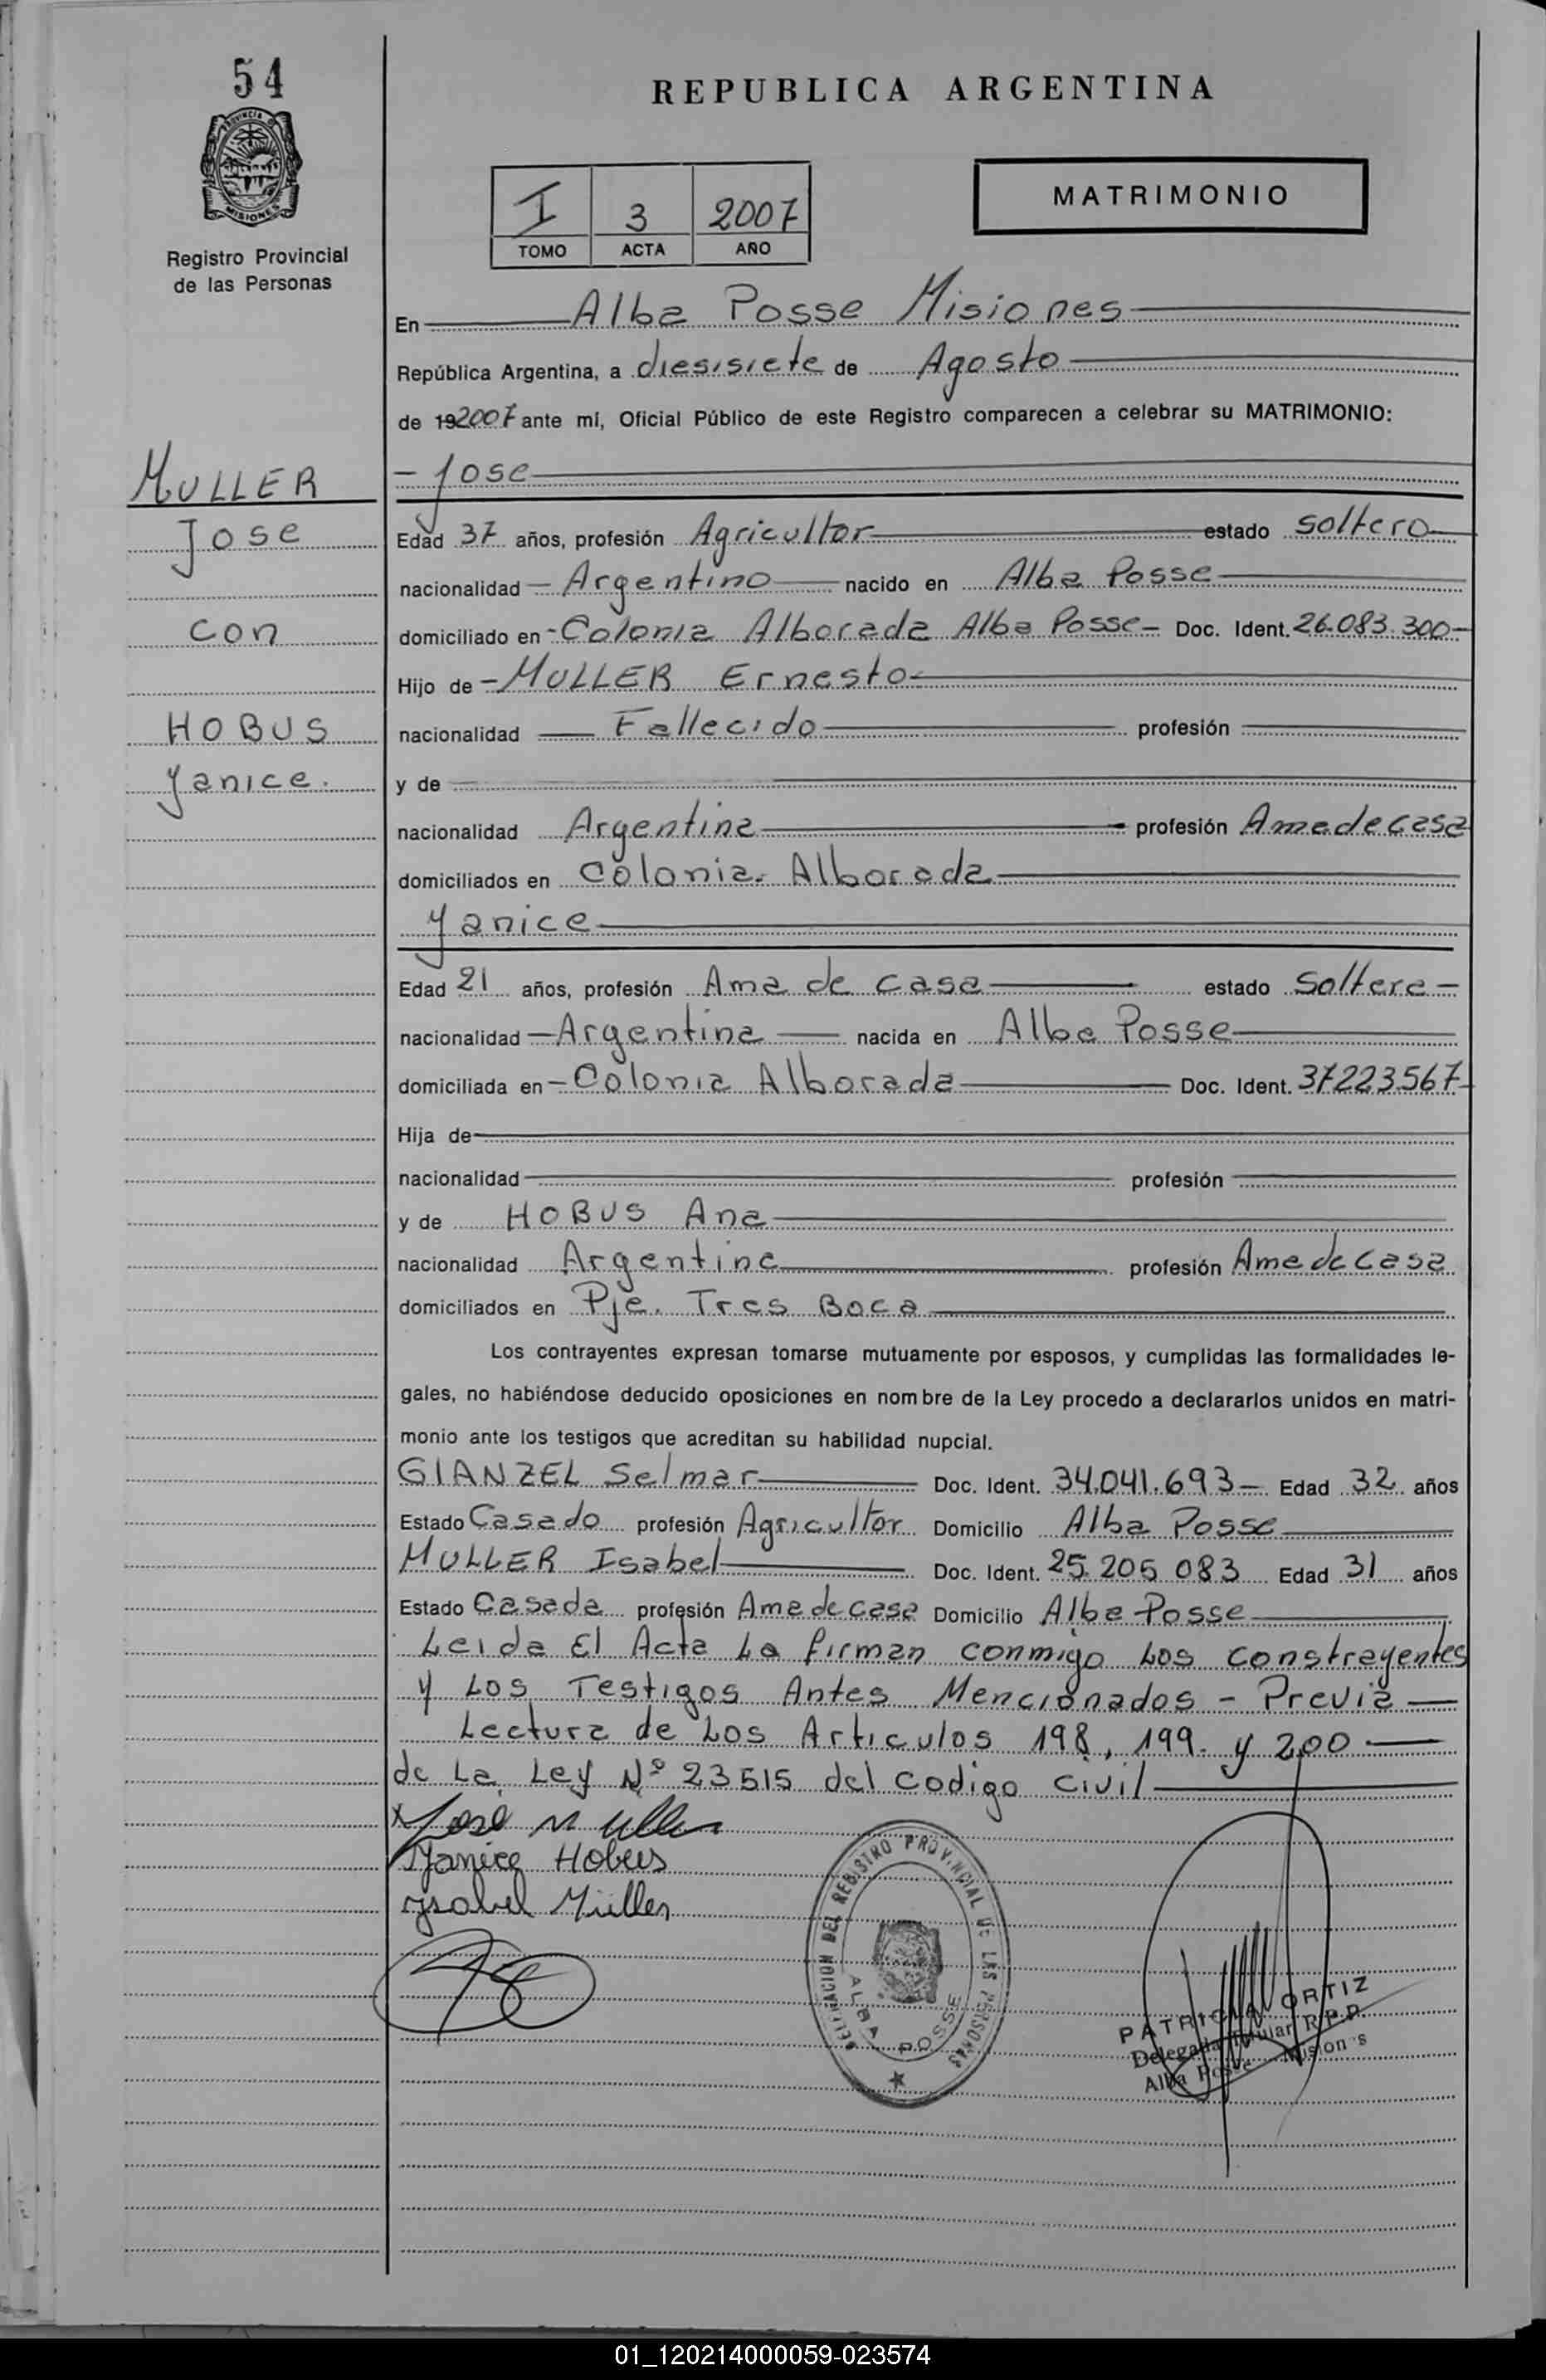 54
PROVINCIA DE
MISIONES
Registro Provincial
de las Personas
REPUBLICA ARGENTINA
I 3 2007
TOMO ACTA AÑO
MATRIMONIO
En Alba Posse Misiones
República Argentina, a diesisiete de Agosto
de 192007 ante mi, Oficial Público de este Registro comparecen a celebrar su MATRIMONIO:
MULLER
Jose
con
HOBUS
Yanice.
- Jose
Edad 37 años, profesión Agricultor estado soltero
nacionalidad - Argentino nacido en Alba Posse
domiciliado en - Colonia Alborada Alba Posse - Doc. Ident. 26.083.300-
Hijo de - MULLER Ernesto
nacionalidad Fallecido profesión
y de
nacionalidad Argentina profesión Ama de casa
domiciliados en Colonia Alborada
Yanice
Edad 21 años, profesión Ama de casa estado Soltera -
nacionalidad - Argentina nacida en Alba Posse
domiciliada en - Colonia Alborada Doc. Ident. 37223567-
Hija de
nacionalidad profesión
y de HOBUS Ana
nacionalidad Argentina profesión Ama de casa
domiciliados en Pje. Tres Boca
Los contrayentes expresan tomarse mutuamente por esposos, y cumplidas las formalidades le-
gales, no habiéndose deducido oposiciones en nombre de la Ley procedo a declararlos unidos en matri-
monio ante los testigos que acreditan su habilidad nupcial.
GIANZEL Selmar Doc. Ident. 34.041.693- Edad 32 años
Estado Casado profesión Agricultor Domicilio Alba Posse
MULLER Isabel Doc. Ident. 25.205.083 Edad 31 años
Estado Casada profesión Ama de casa Domicilio Alba Posse
Leida El Acta La firman conmigo Los constrayentes
y Los Testigos Antes Mencionados - Previa
Lectura de Los Articulos 198, 199. y 200
de La Ley Nº 23515 del codigo civil
x Jose Muller
Yanice Hobus
Ysabel Müller
DELEGACION DEL REGISTRO PROVINCIAL DE LAS PERSONAS
ALBA POSSE
PATRICIA ORTIZ
Delegada Titular R.P.P.
Alba Posse - Misiones
01_120214000059-023574